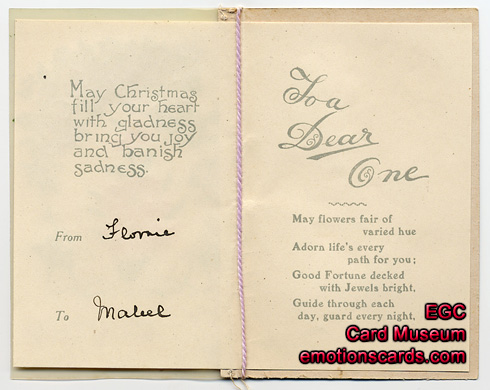 May Christmas
fill your heart
with gladness
bring you joy
and banish
sadness.
From Florrie
To Mabel
To a
Dear
One
May flowers fair of
varied hue
Adorn life's every
path for you;
Good Fortune decked
with Jewels bright,
Guide through each
day, guard every night.
EGC
Card Museum
emotionscards.com